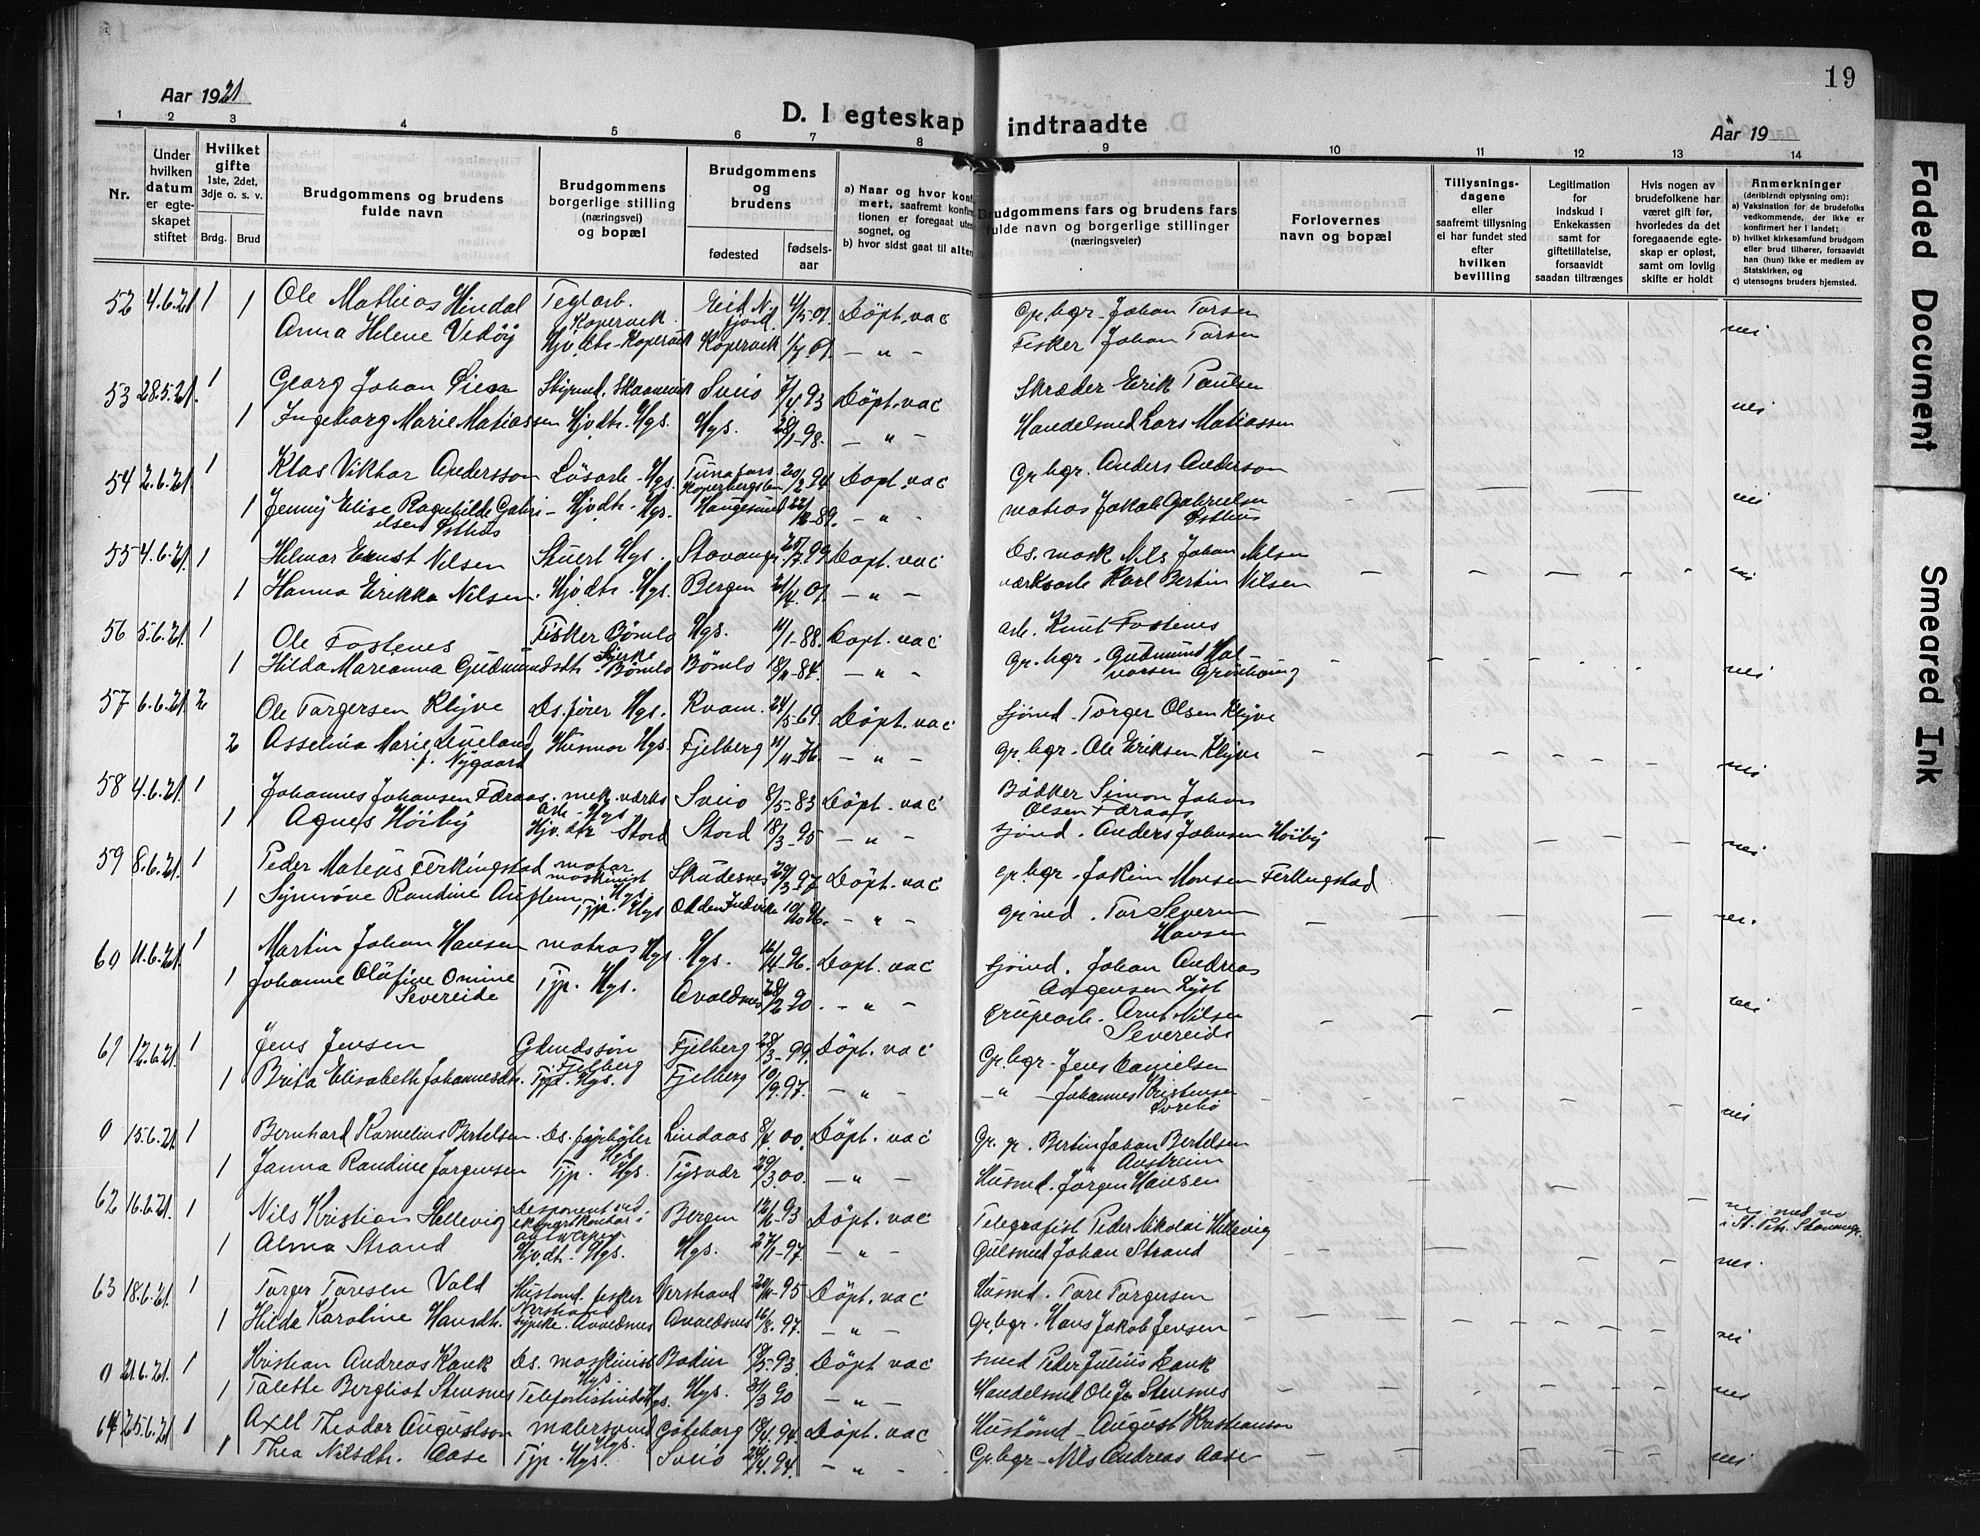 Aar 1921
D. I egteskap indtraadte
Aar 19
19
1 2 3 4 5 6 7 8 9 10 11 12 13 14
Nr.
Under hvilken datum er egteskapet stiftet
Hvilket gifte 1ste, 2det, 3dje o. s. v.
Brdg. Brud
Brudgommens og brudens fulde navn
Brudgommens borgerlige stilling (næringsvei) og bopæl
Brudgommens og brudens
fødested
fødsels-aar
a) Naar og hvor konfirmert, saafremt konfirmationen er foregaat utensognet, og
b) hvor sidst gaat til alters
Brudgommens fars og brudens fars fulde navn og borgerlige stillinger (næringsveier)
Forlovernes navn og bopæl
Tillysningsdagene eller saafremt tillysning ei har fundet sted efter hvilken bevilling
Legitimation for indskud i Enkekassen samt for giftetillatelse, forsaavidt saadan tiltrænges
Hvis nogen av brudefolkene har været gift før, hvorledes da det foregaaende egteskap er opløst, samt om lovlig skifte er holdt
Anmerkninger (deriblandt oplysning om):
a) Vaksination for de brudefolks vedkommende, der ikke er konfirmert her i landet;
b) hvilket kirkesamfund brudgom eller brud tilhører, forsaavidt han (hun) ikke er medlem av Statskirken, og
c) utensogns bruders hjemsted.
52 4.6.21 1 1 Ole Mathias Hindal Teglarb. Kopervik Døpt. vac Gr.bgr. Johan Torsen
Anna Helene Vedøy Hjv.dtr. Kopervik Kopervik 1/7 01. — " — Fisker Johan Torsen nei
53 28.5.21. 1 Georg Johan Styrmd. Skaanevik Sveio 7/4 93 Døpt. vac Skræder Erik Paulsen
1 Ingeborg Marie Matiassen Hjv.dtr. Hgs. Hgs. 28/1-98. — " — Handelsmd Lars Matiassen nei
54 2.6.21. 1 Klas Viktor Andersson Løsarb. Hgs. 20/2 94 Døpt. vac Gr.bgr. Anders Anderson
1 Jenny Elise Ragnhilde Gabrielsen Østhus Hjv.dtr. Hgs. Haugesund — " — matros Jakob Gabrielsen Østhus nei
55 4.6.21. 1 Hilmar Ernst Nilsen Stuert Hgs. Stavanger Døpt. vac Ds. mask Nils Johan Nilsen
1 Hanna Erikka Nilsen. Hjv.dtr. Hgs. Bergen 21/4. 01. — " — værksarb Karl Bertin Nilsen nei
56 5.6.21. 1 Ole Fostenes Fisker Bømlo Hgs. 11/1-88. Døpt. vac arb. Knut Fostenes
1 Hilda Marianna Gudmundsdt. Bømlo Bømlo — " — Gr.bgr. Gudmund Halvorsen nei
57 6.6.21. 2 Ole Torgersen Kleive Ds. fører Hgs. Kvam. 24/5-69. Døpt. vac Sjømd. Torger Olsen Kleive
2 Asseline Marie Lueland f. Nygaard Husmor Hgs. Fjelberg 11/11-76. — " — Gr.bgr. Ole Eriksen Kleive nei
58 4.6.21. 1 Johannes Johansen Færaas. mek. værks arb. Hgs Sveio 8/5-83 Døpt. vac Bødker Simon Johan Olsen Færaas
1 Agnes Høiby Hjv.dtr Stord Stord 18/3-95 — " — Sjømd. Anders Johnsen Høiby nei
59 8.6.21. 1 Peder Mateus Ferkingstad motor maskinist Hgs Skudesnes 29/3-97 Døpt. vac gr.bgr. Jakim Monsen Ferkingstad
1 Synnøve Randine Austlem Tjp. Hgs 10/10 96. — " — Tor Severin Hansen nei.
60 11.6.21. 1 Martin Johan Hansen matros Hgs. Hgs. Døpt. vac Sjømd. Johan Andreas Aagensen Lyst
1 Johanne Olafine Omine Severeide Tjp. Hgs. Avaldsnes 28/2 90. — " — grubearb. Arnt Nilsen Severeide nei
61 12.6.21. 1 Jens Jensen Gdmdssøn Fjelberg Fjelberg 28/3-99. Døpt. vac Gr.bgr. Jens Danielsen
1 Brita Elisabeth Johannesdt. Tjp. Hgs. Fjelberg 10/9 97. — " — — " — Johannes Kristensen nei
0 15.6.21. 1 Bernhard Kornelius Bertelsen. Ds. fyrbøter Hgs Lindaas 8/4 00. Døpt. vac Gr. gr. Bertin Johan Bertelsen Austreim
1 Janna Randine Jørgensen Tjp. Hgs. Tysvær 29/3 00. — " — Husmd. Jørgen Hansen nei
62 16.6.21. 1 Nils Kristian Hellevig Bergen Døpt. vac Telegrafist Peder Nikolai Hellevig nei. med va i St. Petr. Stavanger.
1 Alma Strand Hjv.dt. Hgs. Hgs. 27/1-97. — " — Gulsmed Johan Strand nei.
63 18.6.21. 1 Torger Toresen Vold Hustømd. fisker Nerstrand Nerstrand Døpt. vac Husmd. Tore Torgersen
1 Hilda Karoline Hansdt. Avaldsnes Avaldsnes 16/8. 97. — " — Gr.bgr. Hans Jakob Jensen nei
0 21.6.21. 1 Kristian Andreas Kank Ds. maskinist Hgs. Bodin Døpt vac smed Peder Julius Kank
1 Talette Bergliot Stensnes Telefonistinde Hgs. Hgs. 31/3 90 — " — Handelsmd Ole J. Stensnes nei
64 25.6.21 1 Axel Theodor Augustson malersvend Hgs. Göteborg 18/4. 94. Døpt. vac Hustømd August Kristianson
1 Thea Nilsdtr. Aase Tjp. Hgs. Sveio 24/4. 94. — " — Gr.bgr. Nils Andreas Aase nei
Faded Document
Smeared Ink